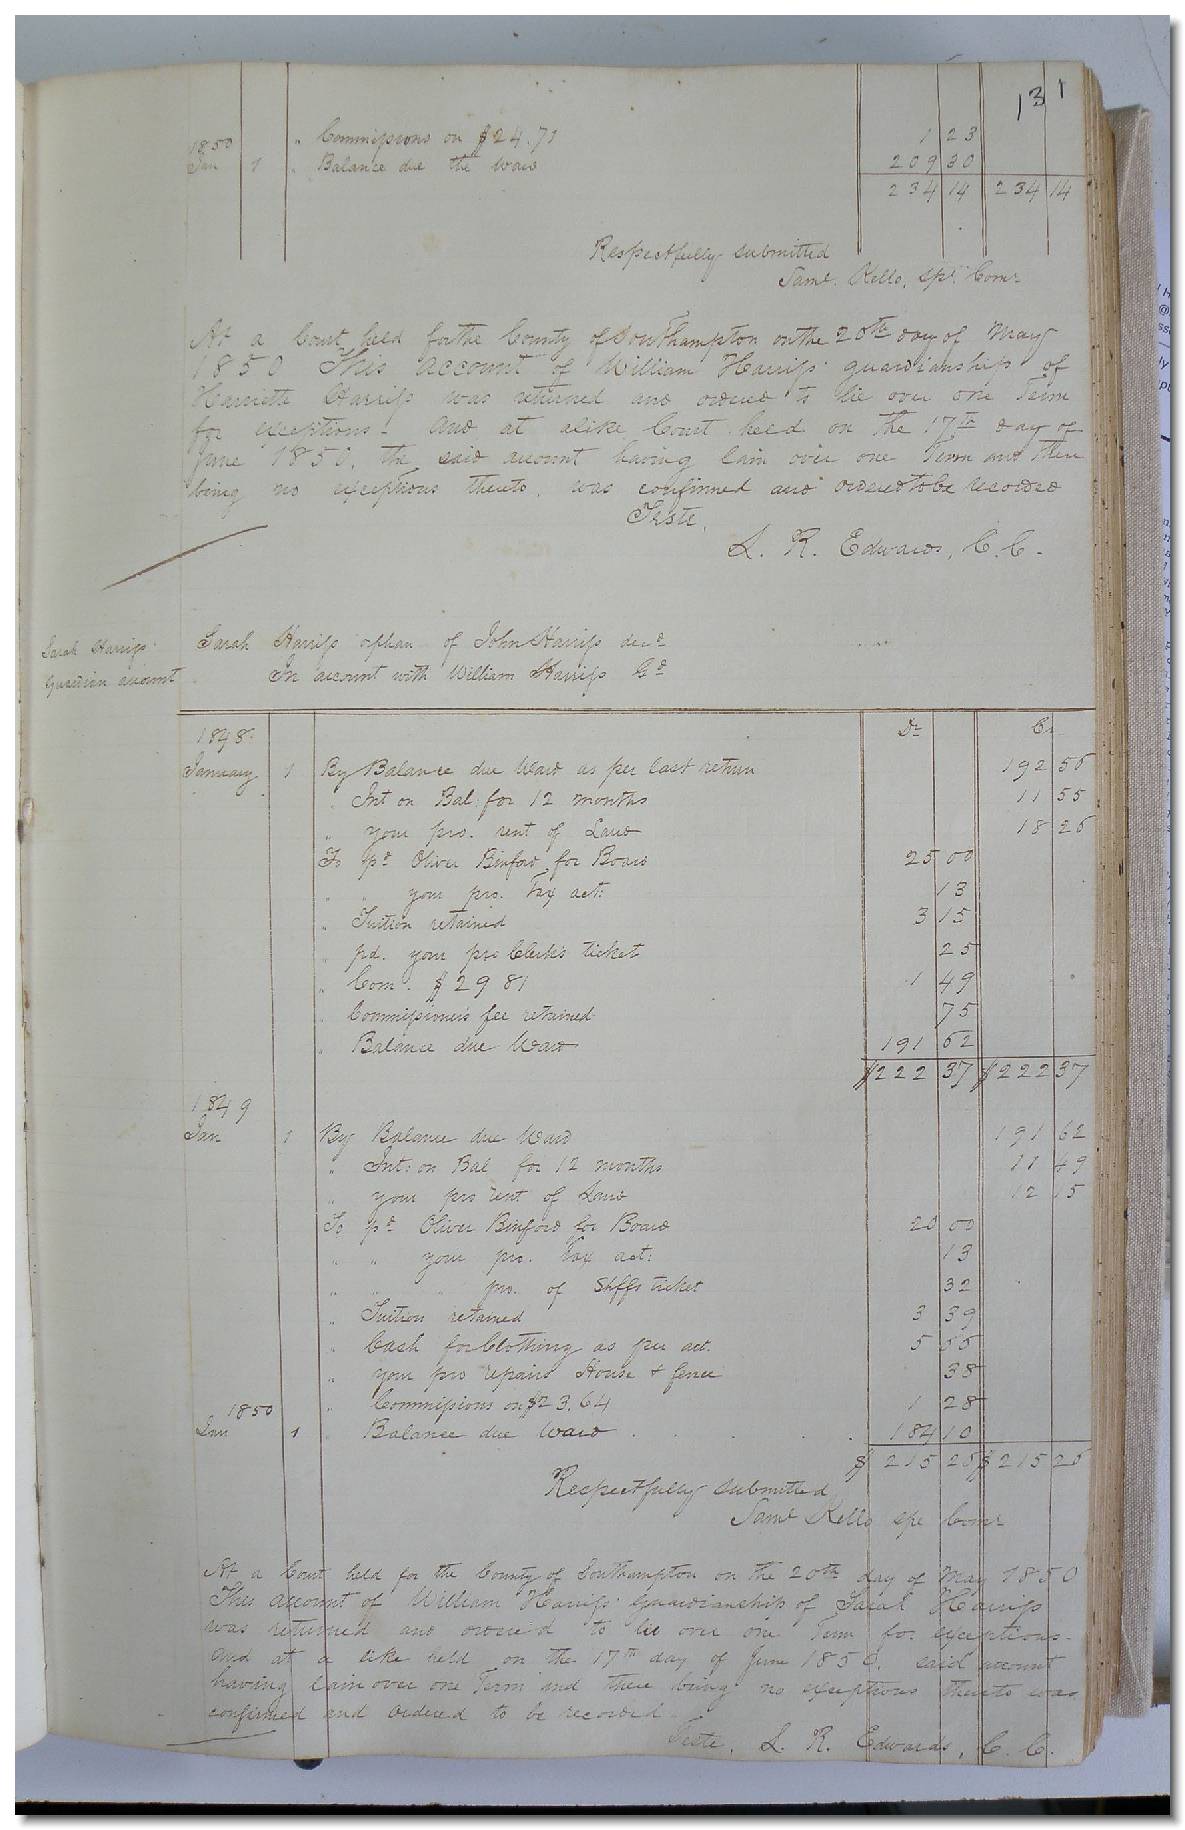 131
" Commissions on $24.71 1 23
1850
Jan 1 " Balance due the Ward 209 30
234 14 234 14
Respectfully submitted
Saml. Kello, Spl. Comr
At a Court held for the County of Southampton on the 20th day of May
1850 This account of William Harriss guardianship of
Harriett Harriss was returned and ordered to lie over one Term
for exceptions - And at alike Court held on the 17th day of
June 1850, the said account having lain over one Term and there
being no exceptions thereto, was confirmed and ordered to be recorded
Teste,
L. R. Edwards, C. C.
Sarah Harriss
guardian account
Sarah Harriss orphan of John Harriss decd
In account with William Harriss Gd
Dr Cr
1848
January 1 By Balance due Ward as per last return 192 56
" Int on Bal for 12 months 11 55
" your pro. rent of Land 18 26
To pd Oliver Binford for Board 25 00
" " your pro. Tax act: 13
" Tuition retained 3 15
" pd. your pro Clerk's ticket 25
" Com. $29 81 1 49
" Commissioner's fee retained 75
" Balance due Ward 191 62
$222 37 $222 37
1849
Jan 1 By Balance due Ward 191 62
" Int: on Bal for 12 months 11 49
" your pro rent of Land 12 15
To pd Oliver Binford for Board 20 00
" " your pro. Tax act: 13
" " " pro. of Shffs ticket 32
" Tuition retained 3 39
" Cash for Clothing as per act. 5 55
" your pro repairs House & fence 38
" Commissions on $23.64 1 28
1850
Jan 1 " Balance due Ward 184 10
$ 215 26 $ 215 26
Respectfully submitted
Saml Kello spe Comr
At a Court held for the County of Southampton on the 20th day of May 1850
This account of William Harriss Guardianship of Sarah Harriss
was returned and ordered to lie over one Term for exceptions -
And at a like held on the 17th day of June 1850, said account
having lain over one Term and there being no exceptions thereto was
confirmed and ordered to be recorded.
Teste, L. R. Edwards, C. C.